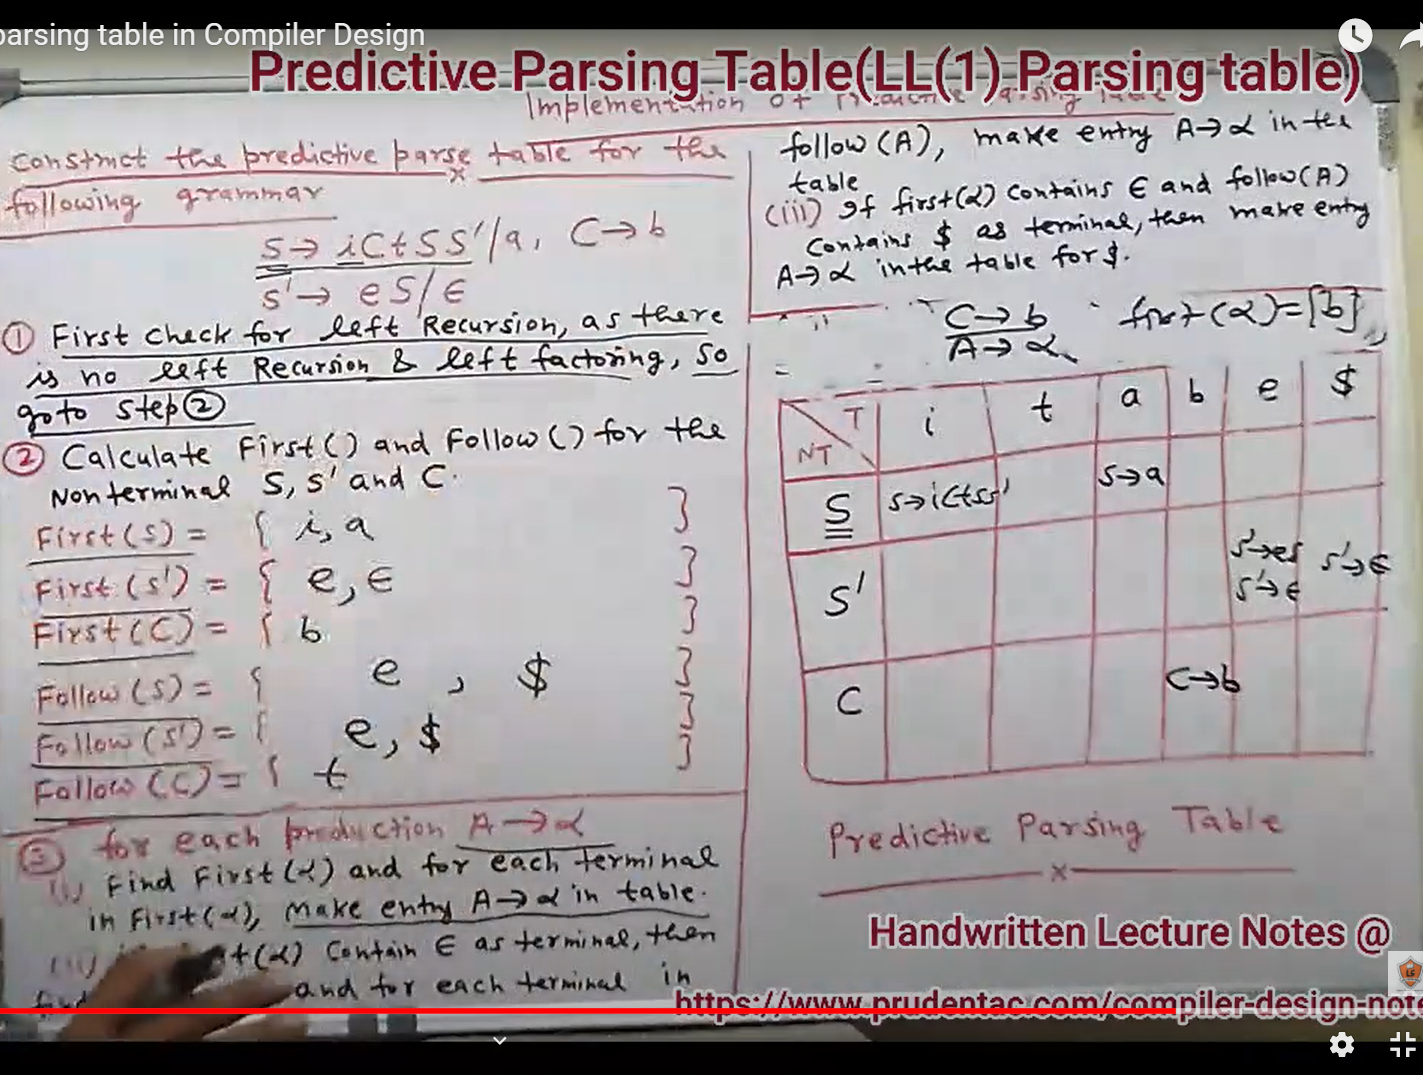 parsing table in Compiler Design
Predictive Parsing Table(LL(1) Parsing table)
Implementation of
Construct the predictive parse table for the
following grammar
S→ iCtSS'/a, C→b
S'→ eS/∈
① First check for left Recursion, as there
is no left Recursion & left factoring, so
goto step②
② Calculate First() and Follow() for the
Nonterminal S, S' and C.
First(S) = { i, a }
First(S') = { e, ∈ }
First(C) = { b }
Follow(S) = { e , $ }
Follow(S') = { e, $ }
Follow(C) = { t }
③ for each production A→α
(i) Find First(α) and for each terminal
in First(α), Make entry A→α in table.
(ii) Contain ∈ as terminal, then
and for each terminal in
follow(A), make entry A→α in the
table
(iii) If first(α) contains ∈ and follow(A)
contains $ as terminal, then make entry
A→α in the table for $.
C→b first(α)=[b]
A→α
NT T i t a b e $
S S→iCtSS' S→a
S' S'→eS S'→∈
S'→∈
C C→b
Predictive Parsing Table
x
Handwritten Lecture Notes @
https://www.prudentac.com/compiler-design-note